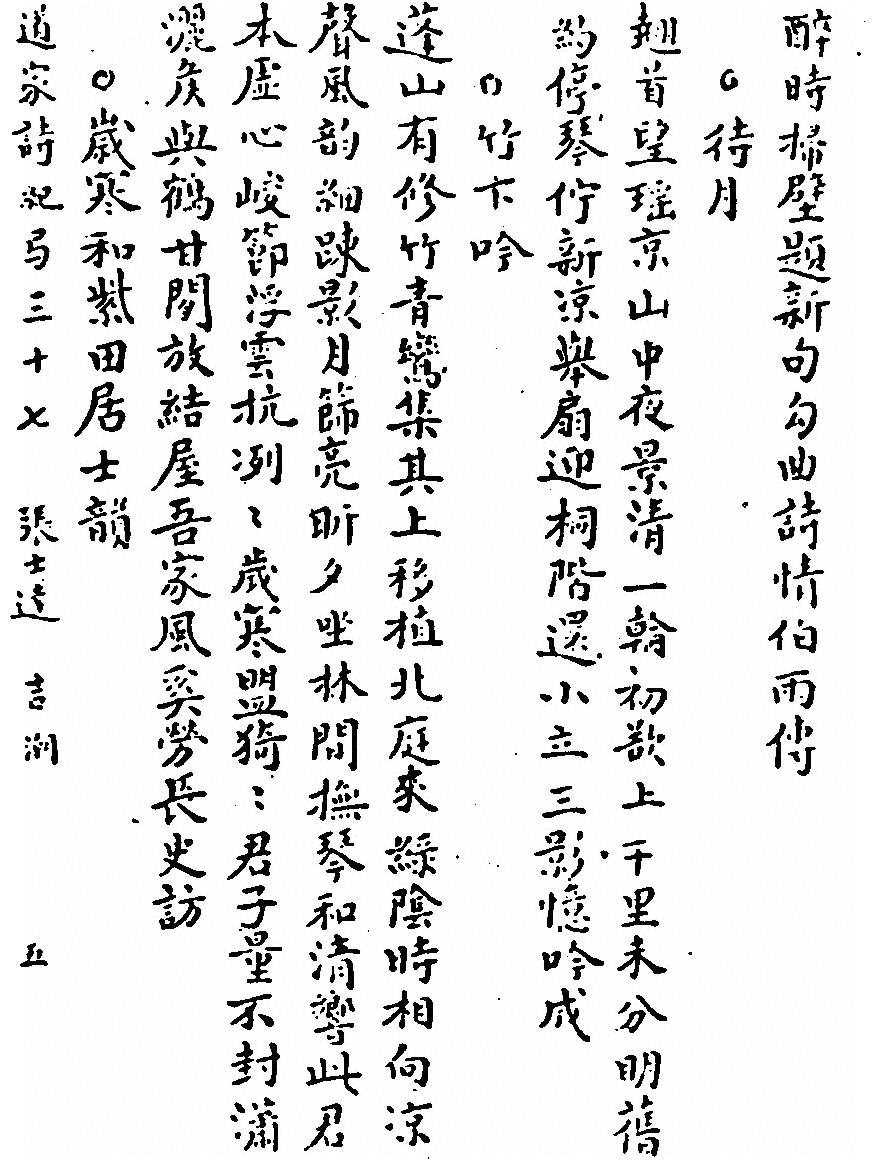 醉時掃壁題新句勾曲詩情伯雨傳
○待月
翹首望瑤京山中夜景清一輪初欲上千里未分明舊
約停琴佇新涼舉扇迎桐階還小立三影憶吟成
○竹下吟
蓬山有修竹青鸞集其上移植北庭來綠陰時相向涼
聲風韵細踈影月篩亮昕夕坐林間撫琴和清響此君
本虛心峻節浮雲抗冽〻歲寒盟猗〻君子量不封瀟
灑侯與鶴甘閒放結屋吾家風奚勞長史訪
○歲寒和紫田居士韻
道家詩紀弓三十七 張士達 吉湖 五